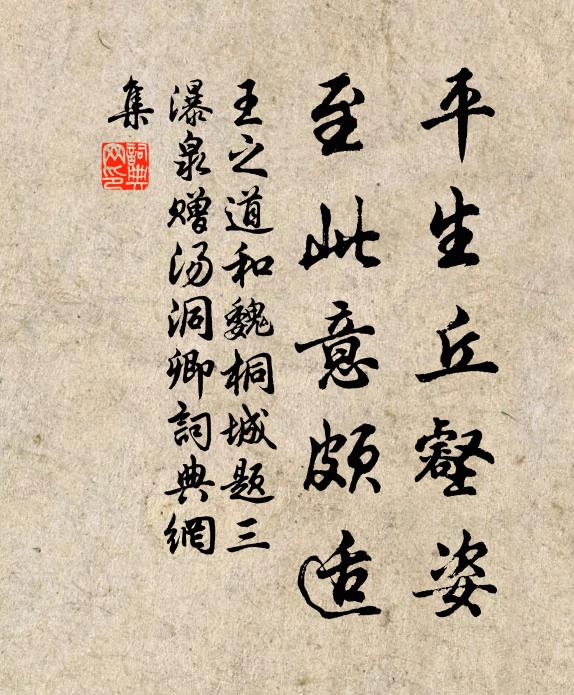 平生丘壑姿
至此意頗适
王之道和魏桐城题三
瀑泉赠汤洞卿詞典網
集
詞典
网印